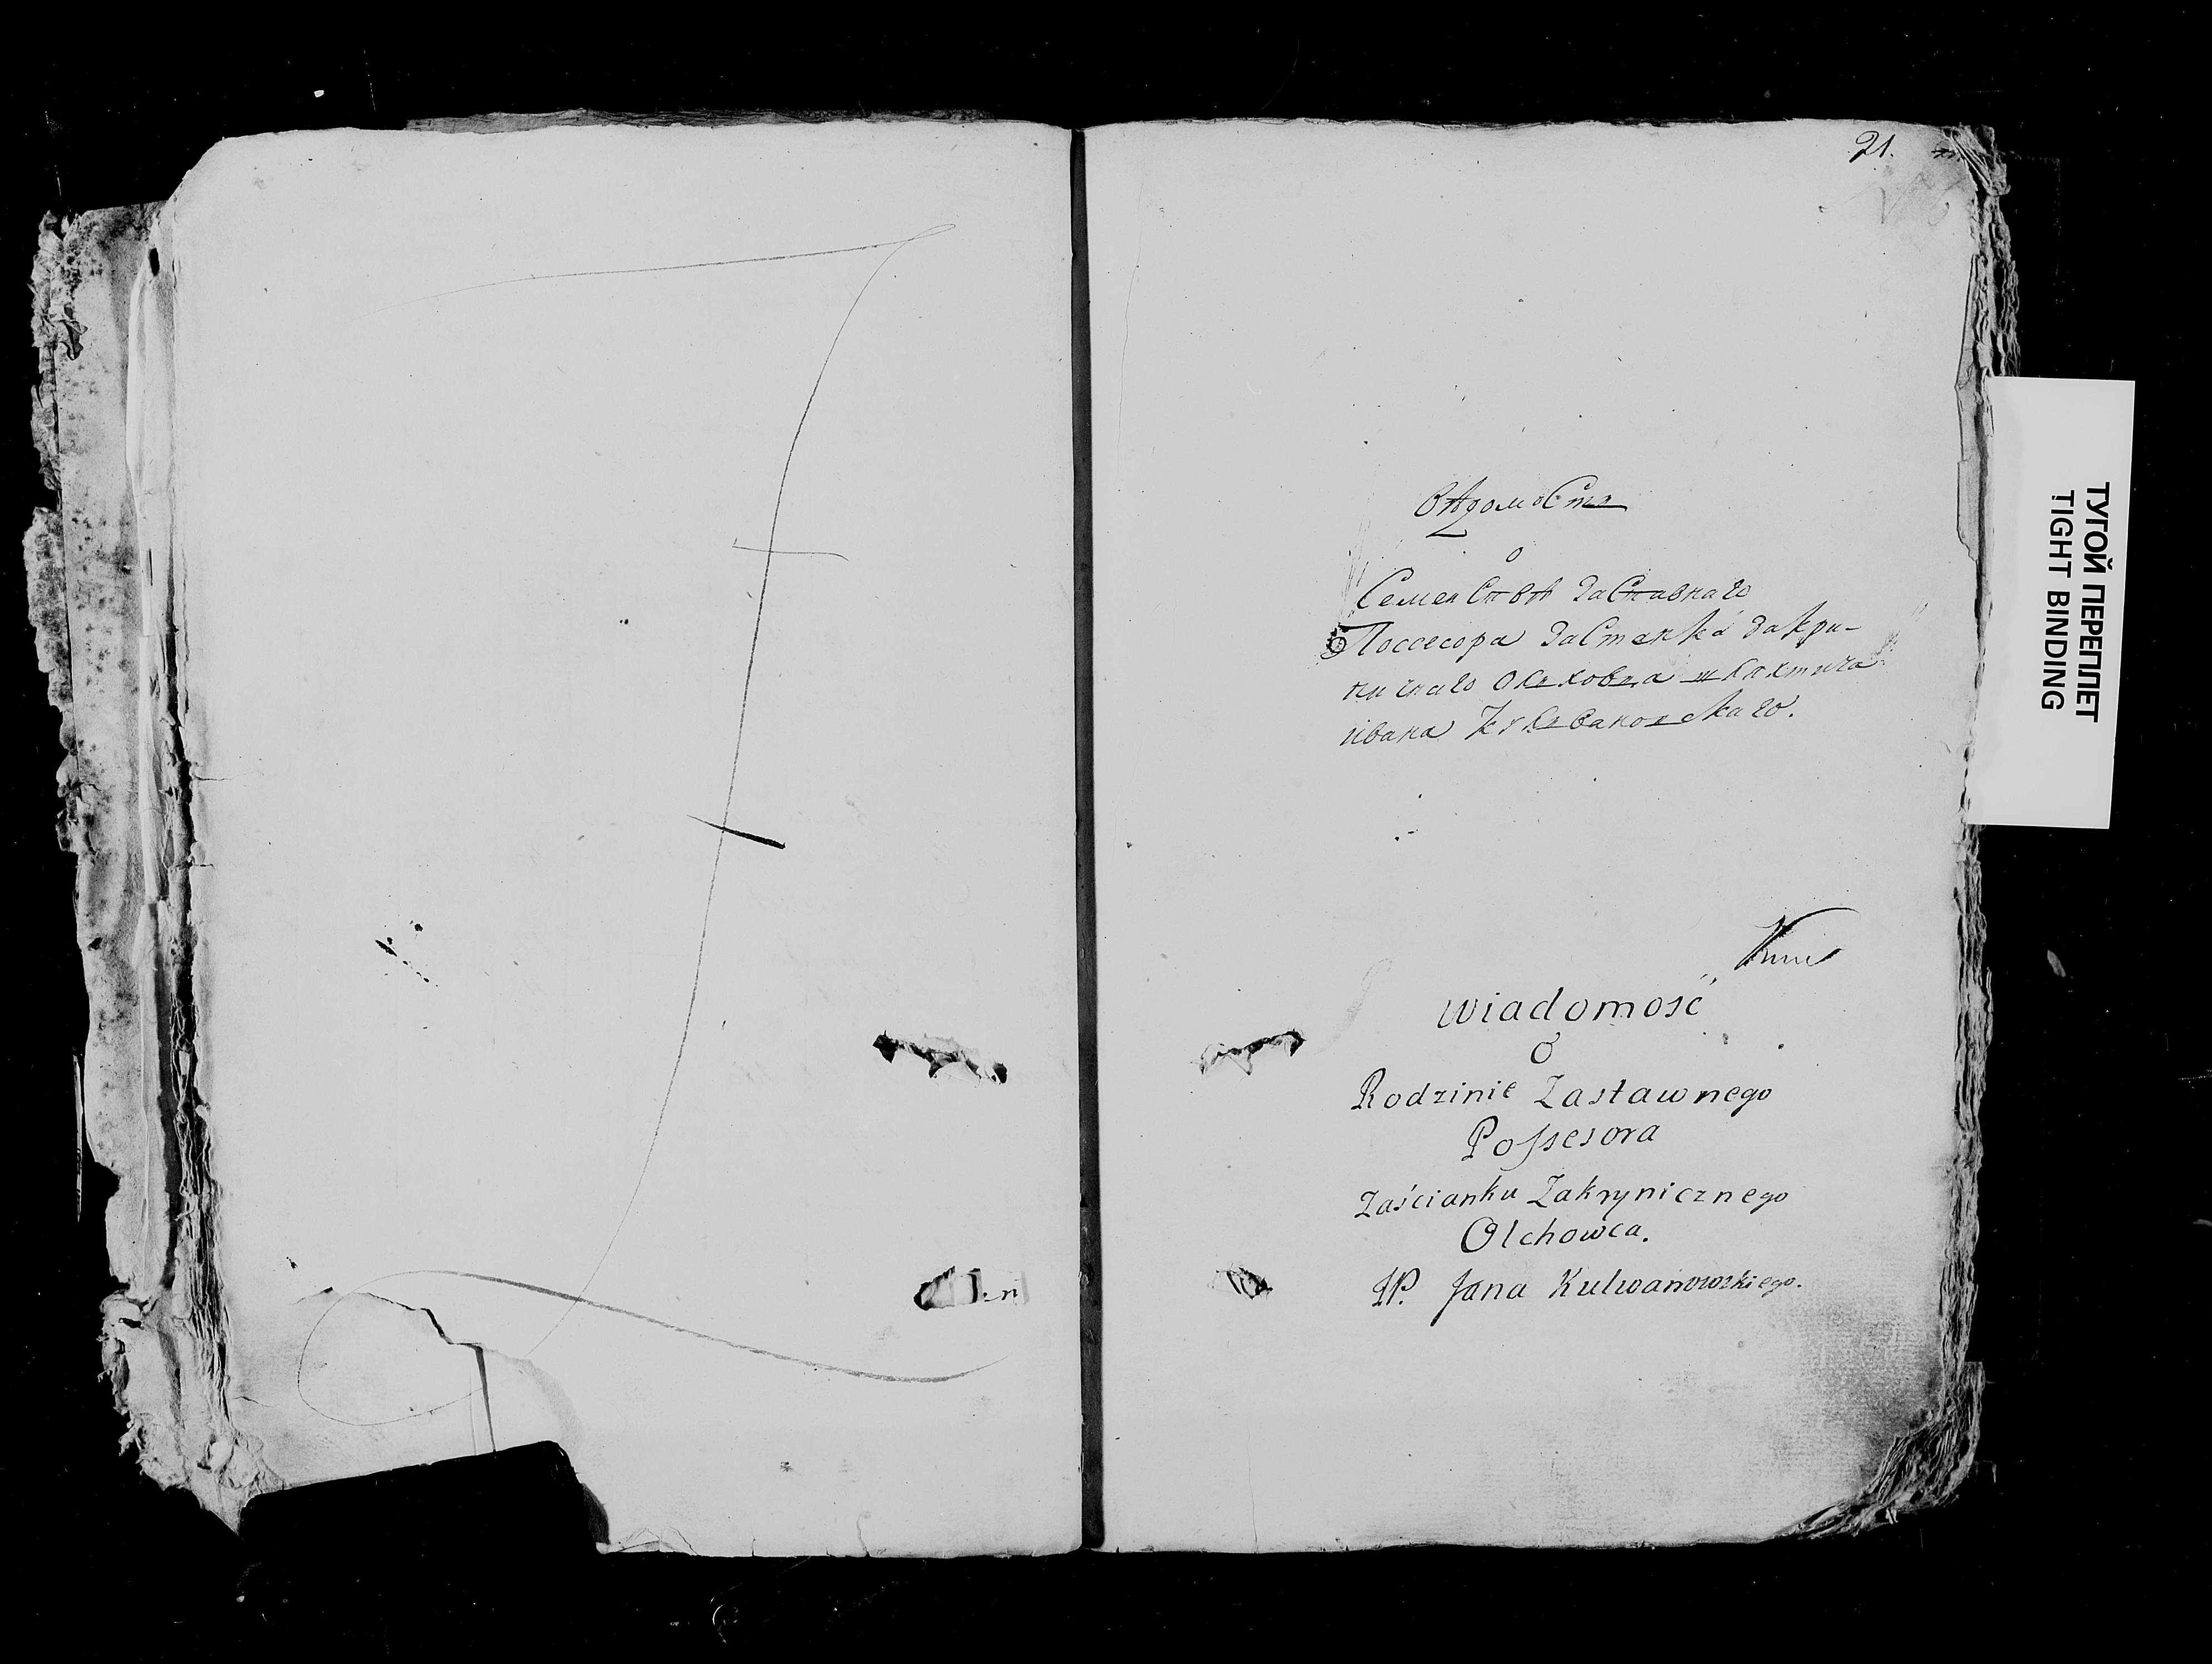 21.
Вѣдомость
о
Семействѣ Заставнаго
Поссесора Застенка Закри-
ничнаго Ольховца шляхтича
ивана Кульвановскаго.
Wiadomość
O
Rodzinie Zastawnego
Possesora
Zaścianku Zakrynicznego
Olchowca.
JP. Jana Kulwanowskiego.
ТУГОЙ ПЕРЕПЛЕТ
TIGHT BINDING